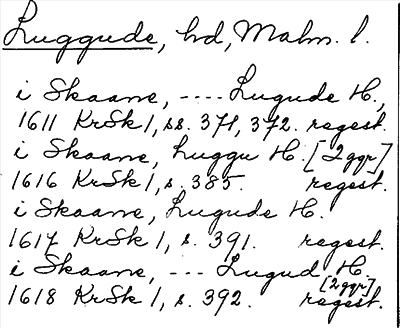 Luggude, hd, Malm. l.
i Skaane, ---- Lugude H.,
1611 KrSk 1, ss. 371, 372. regest.
i Skaane, Luggu H. [2 ggr]
1616 KrSk 1, s. 385. regest.
i Skaane, Lugude H.
1617 KrSk 1, s. 391. regest.
i Skaane, --- Lugud H. [2 ggr]
1618 KrSk 1, s. 392. regest.